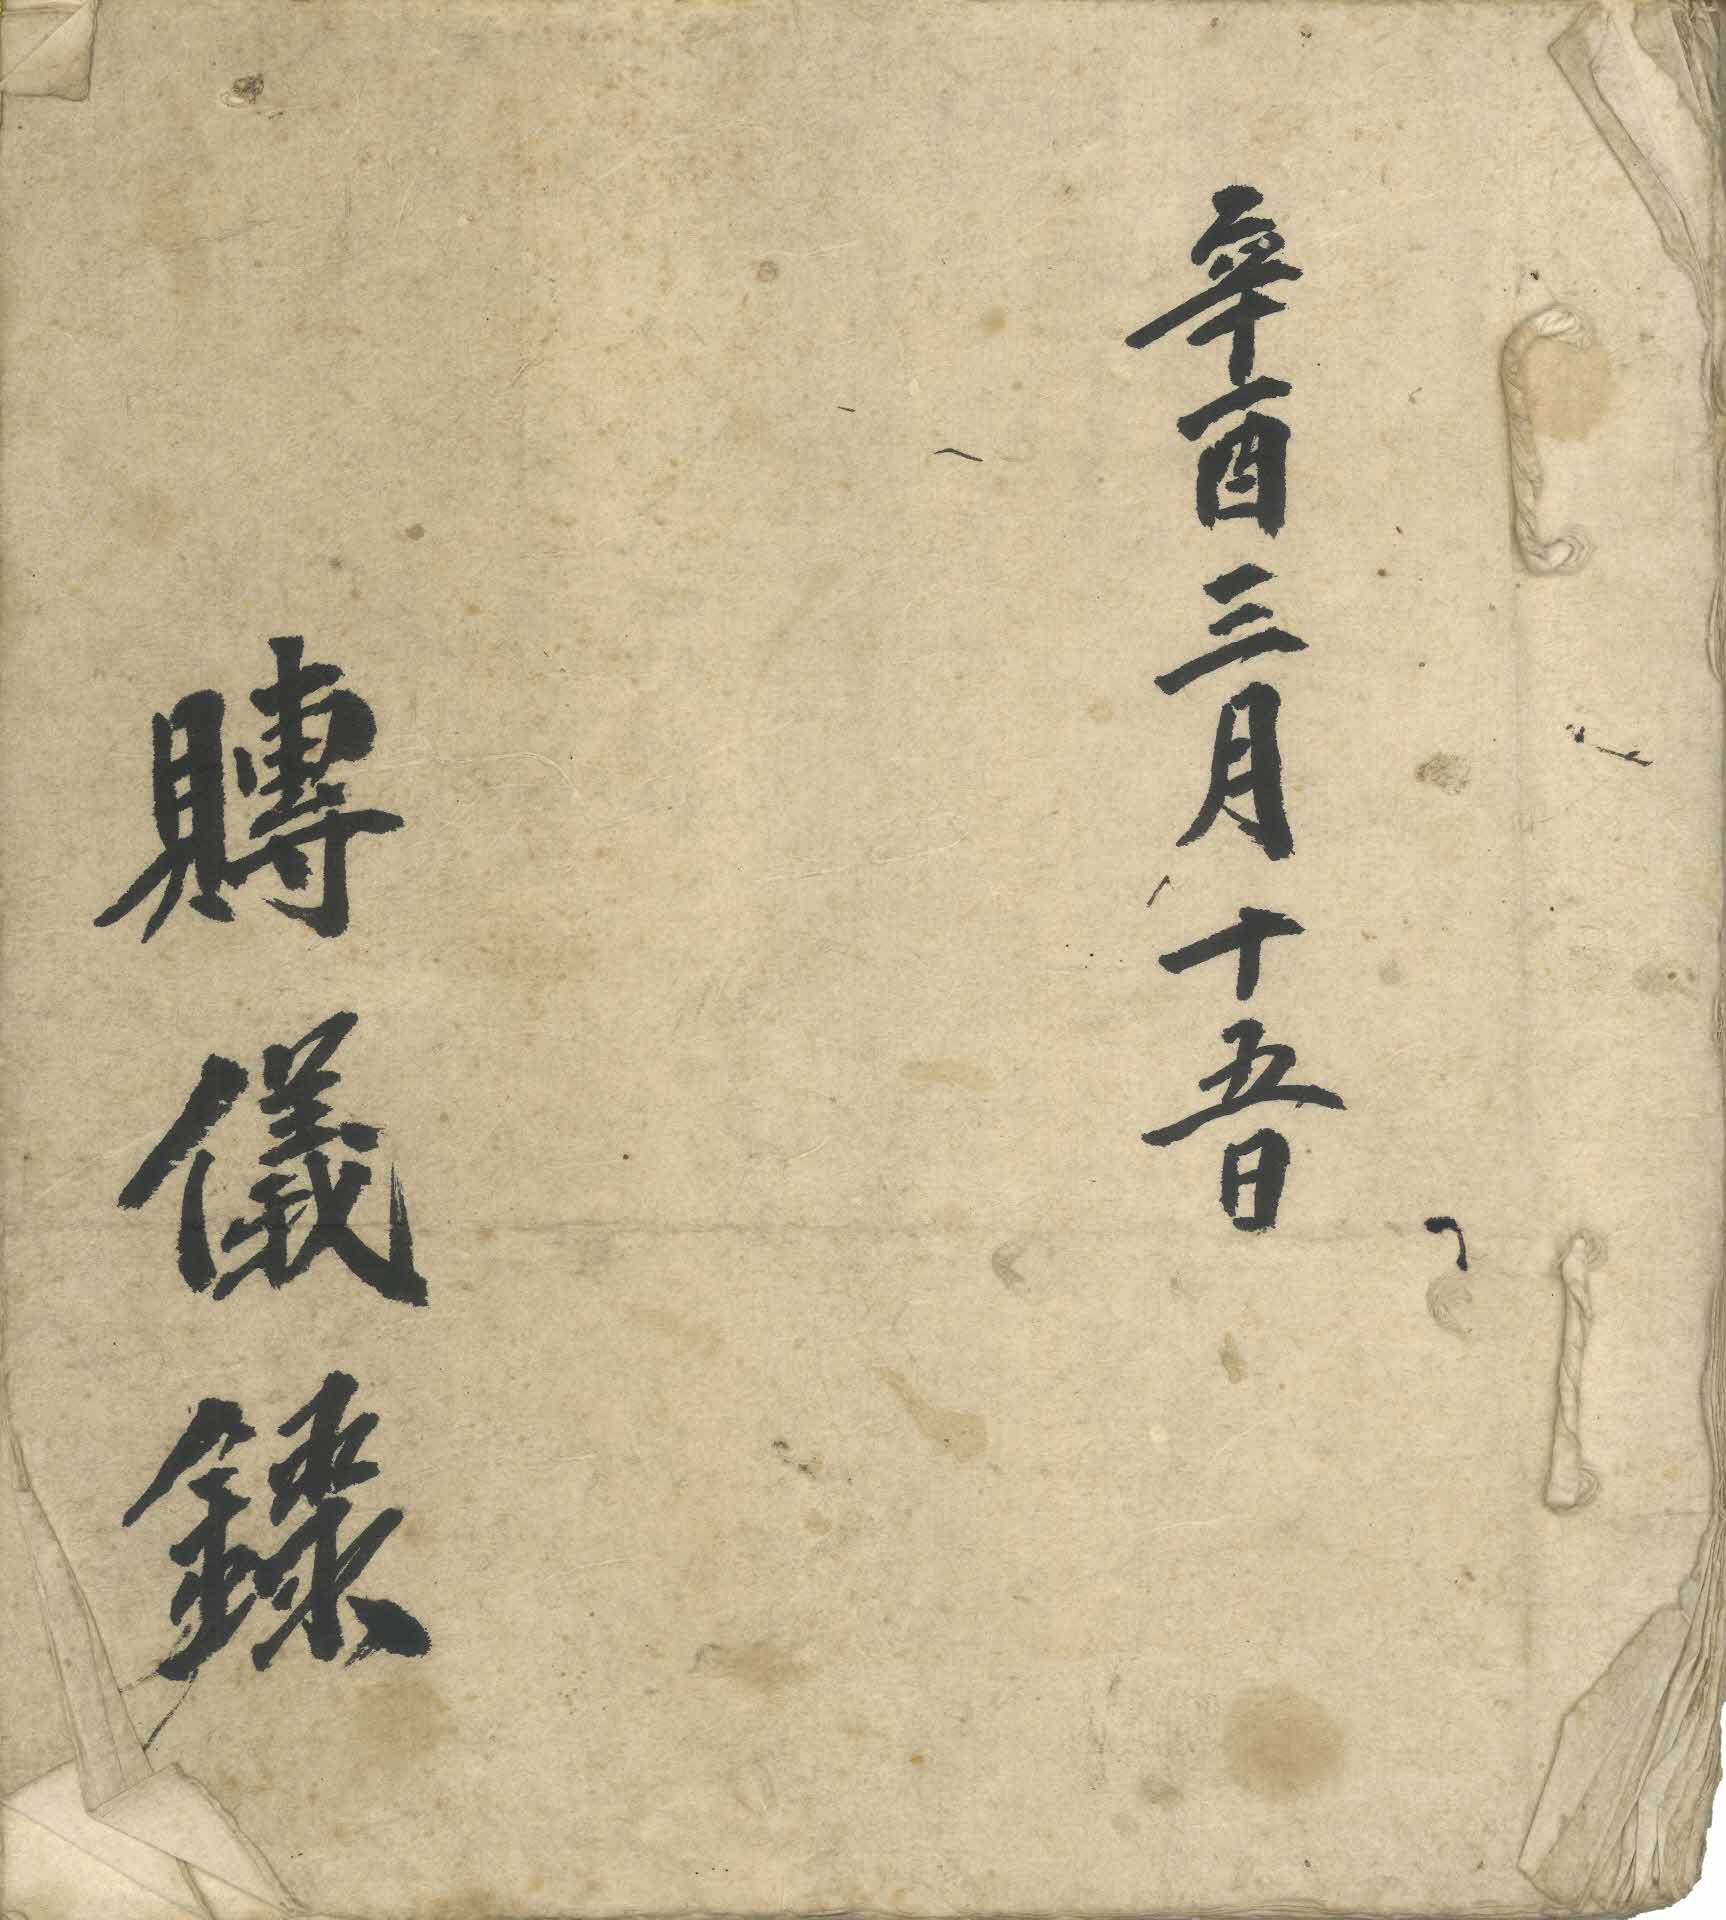 辛酉三月十五日
賻儀錄